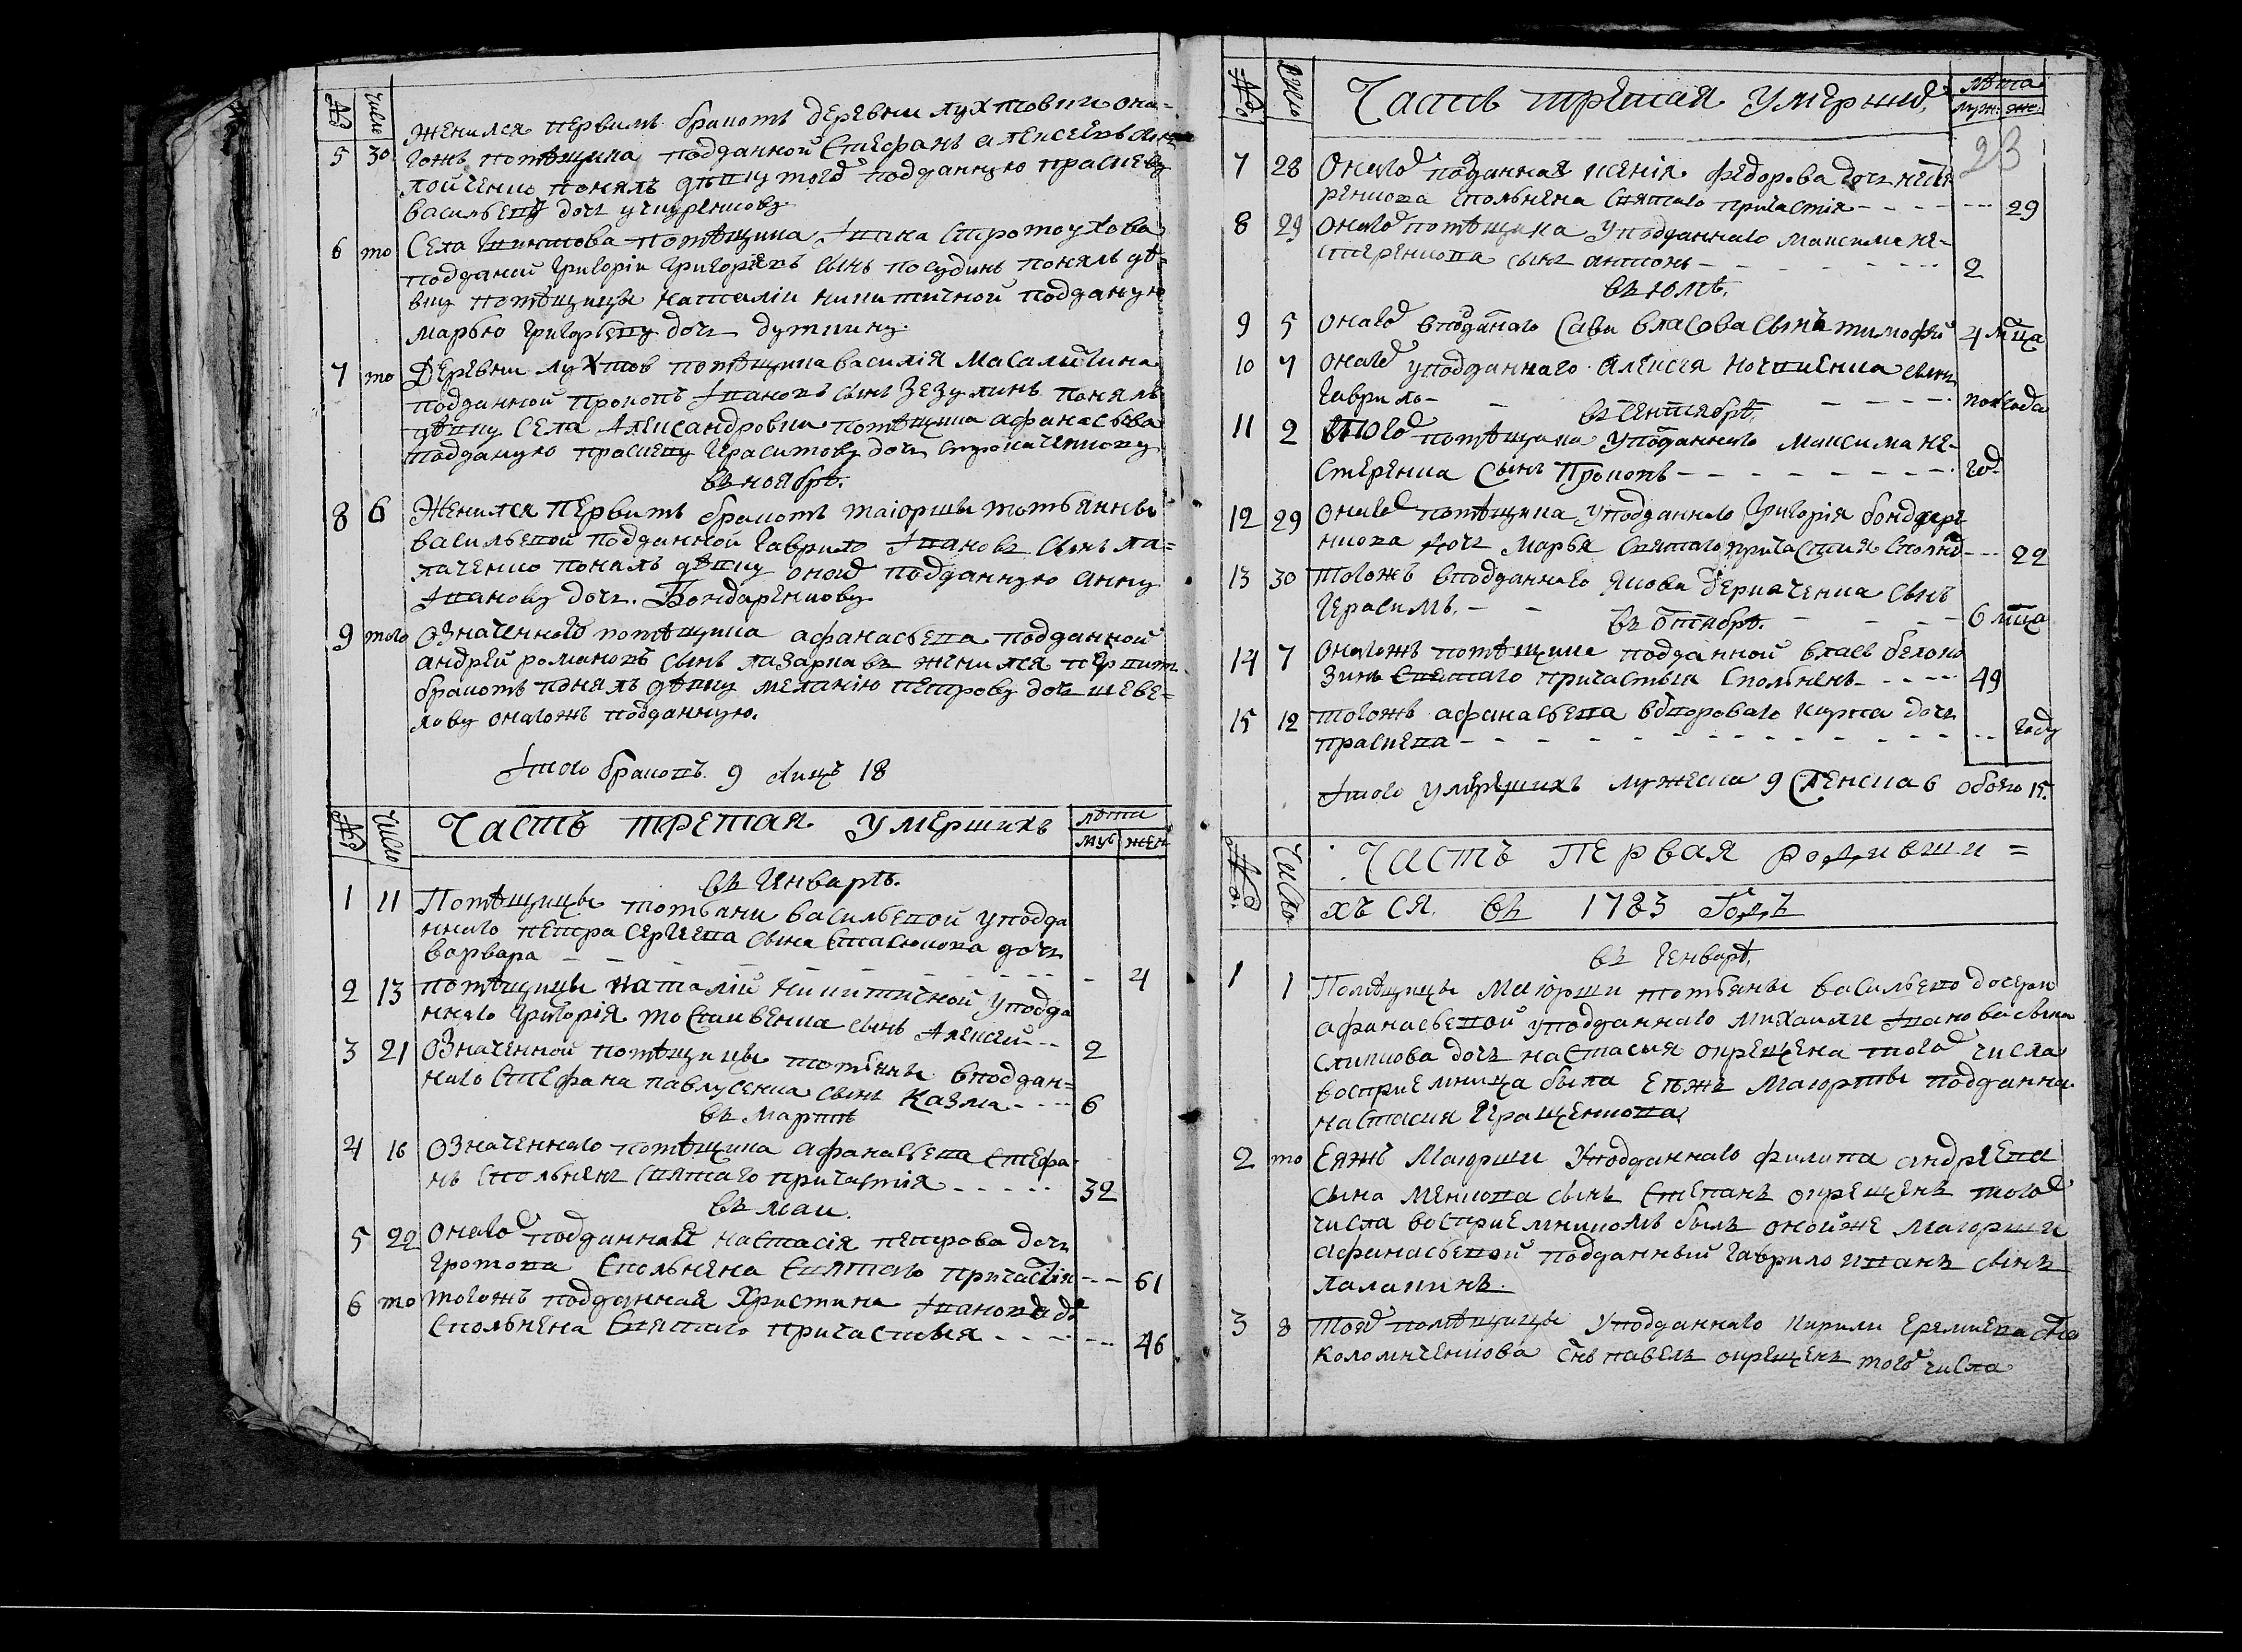 № число
женился первимъ бракомъ деревни лухтовки она=
5 30 гожъ помѣщика подданной Стефанъ алексеевъ
понялъ дѣвку того подданную праскеву
васильеву доч
6 то Села помѣщика Iвана
подданой григорiи григорiевъ сынъ посудинъ понялъ дѣ=
вку помѣщицы наталiи никитичной подданую
марью григорьеву доч дуткину
7 то Деревни лухтов помѣщика василiя Масалитина
подданной прокопъ Iвановъ сынъ Зезулинъ понялъ
дѣвку Села Александровки помѣщика афанасьева
подданую праскеву герасимову доч
въ ноябрѣ.
8 6 Женился первимъ бракомъ маiоршы татьянны
васильевой подданной гаврило Iвановъ сынъ па=
понялъ дѣвку оной подданную анну
Iванову доч. Бондаренкову
9 того Означенного помѣщика афанасьева подданной
андрей романовъ сынъ женился первим
бракомъ понялъ дѣвку меланiю петрову доч шеве=
лову онагожъ подданную.
Iтого браковъ 9 лицъ 18
№ число Часть третая умершихъ лѣта
муж жен
въ Инварѣ.
1 11 Помѣщицы татьяни васильевой у подда
нного петра сергеева сына доч
варвара 4
2 13 помѣщицы наталiй никитичной у подда
нного григорiя сынъ Алексей 2
3 21 Означенной помѣщицы татьяны в поддан=
ного Стефана павлусенка сынъ Казма 6
въ мартѣ
4 16 Означенного помѣщика афанасьева Стефа
нъ сполъненъ святаго причастiя 32
въ маи.
5 22 Оного подданная настасiя петрова доч
громова сполънена святаго причастiя 61
6 то тогожъ подданная Христина Iванова до
сполънена святаго причастья 46
№ число Часть третая умерших лѣта
муж. жен.
23
7 28 Оного подданная ксенiя федорова доч несте
ренкова сполънена святаго причастiя 29
8 29 Оного помѣщика у подданнаго максима не=
стеренкова сынъ антонъ 2
въ юлѣ.
9 5 Оного в подданого Сави власова сынъ тимофей 4 мца
10 7 Оного у подданнаго Алексея сынъ
гаврило пол года
въ сентябрѣ.
11 2 того помѣщика у подданнаго максима не=
стеренка сынъ Прокопъ год
12 29 Оного помѣщика у подданного григорiя бондаре
нкова доч марья святаго причастия сполне 22
13 30 тогожъ в подданного якова деркаченка сынъ
герасимъ. 6 мца
въ октябрѣ.
14 7 Оногожъ помѣщика подданной власъ белоко
зинъ святаго причастья сполъненъ 49
15 12 тогожъ афанасьева в дворового карпа доч
праскева году
Iтого умершихъ мужеска 9 женска 6 обоего 15.
№ Число Часть первая родивши=
хъся. въ 1783 Годъ
въ генварѣ.
1 1 Помѣщицы маiорши татьяны васильево дочери
афанасьевой у подданнаго михаила Iванова сына
слипкова доч настасия окрещена того числа
восприемница была еяжъ маюршы подданна
настасия геращенкова
2 то Еяжъ маюрши у подданнаго филипа андреева
сына менкова сынъ Степанъ окрещенъ того
числа восприемникомъ былъ онойже маюрши
афанасьевой подданный гаврило иванъ сынъ
палагинъ.
3 8 той помѣщицы у подданнаго кирили еремиева сна
коломиченкова снъ павелъ окрещенъ того числа